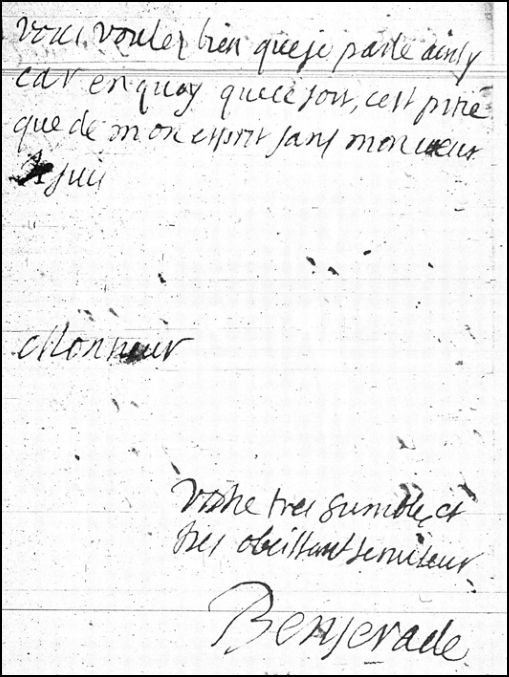 vous voulez bien que je parle ainsy
car en quoy que ce soit, cest pitié
que de mon esprit sans mon coeur
Je suis
Monsieur
Vostre tres humble, et
tres obeissant serviteur
Benserade